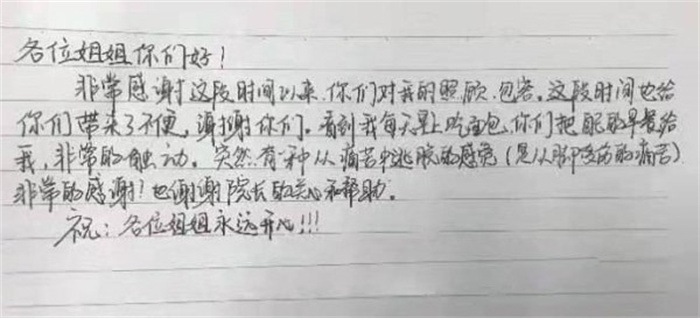 各位姐姐你们好！
非常感谢这段时间以来、你们对我的照顾、包容。这段时间也给
你们带来了不便，谢谢你们。看到我每天早上吃面包、你们把配的早餐给
我，非常的触动。突然有一种从痛苦中逃脱的感觉（是从脚受伤的痛苦）
非常的感谢！也谢谢院长的关心和帮助。
祝：各位姐姐永远开心!!!